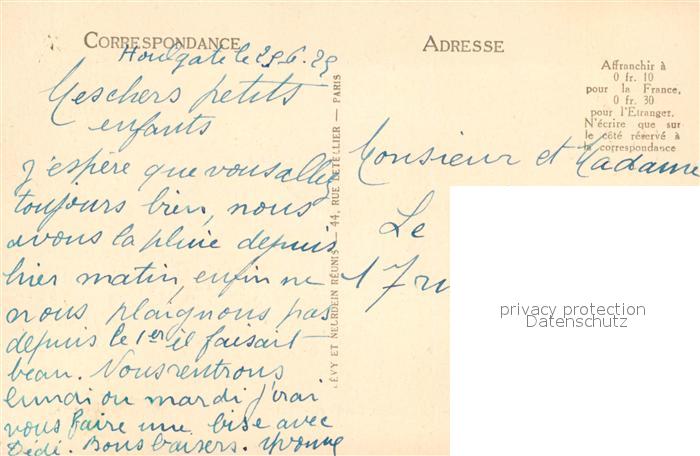 CORRESPONDANCE
Houlgate le 29.6.29
Meschers petits
enfants
j'espère que vous allez
toujours bien, nous
avons la pluie depuis
hier matin, enfin ne
nous plaignons pas
depuis le 1er il faisait
beau. Nous rentrons
lundi ou mardi j'irai
vous faire une bise avec
Dédé. Bons baisers. Yvonne
LÉVY ET NEURDEIN RÉUNIS — 44, RUE LETELLIER — PARIS
ADRESSE
Affranchir à
0 fr. 10
pour la France,
0 fr. 30
pour l'Etranger.
N'écrire que sur
le côté réservé à
la correspondance
Monsieur et Madame
Le
17 ru
privacy protection
Datenschutz